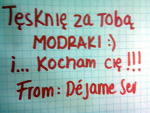 Tęsknię za Tobą
MODRAKI :)
i... Kocham cię !!!
From: Déjame Ser